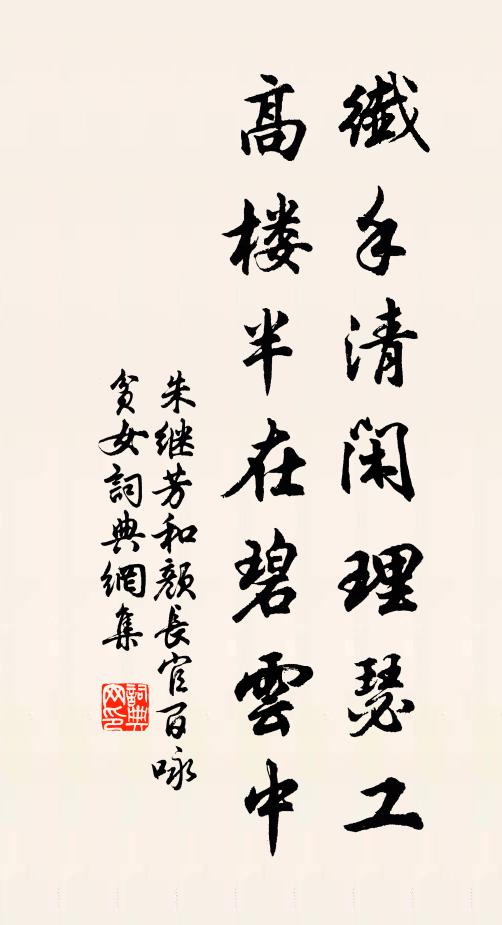 纖手清閑理瑟工
高楼半在碧雲中
朱继芳和顏長官百咏
貧女詞典網集
詞典网印